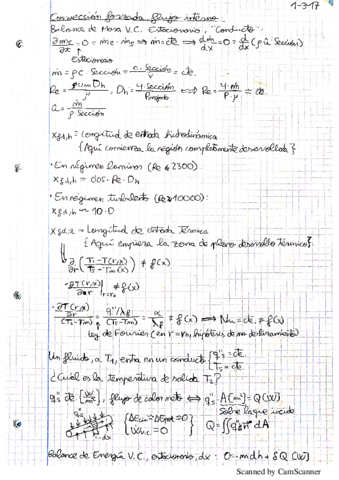 1-3-17
Convección forzada flujo interno:
Balance de Masa V.C. Estacionario, "Conducto":
∂mc/∂t = 0 = me - ms ⟹ m = cte. ⟺ dm/dx = 0 = d/dx (ρ ū Sección)
Estacionario
ṁ = ρ c Sección = c · Sección / v = cte.
Re = ρ u m Dh / μ, Dh = 4 · Sección / Pmojado ⟺ Re = 4 · ṁ / P · μ ≈ cte.
ū = ṁ / ρ Sección
x fd,h = longitud de entrada hidrodinámica
{Aquí comienza la región completamente desarrollada}
· En régimen laminar (Re ≤ 2300)
x fd,h = 0'05 · Re · Dh
· En régimen turbulento (Re ≥ 10000):
x fd,h ~ 10 · D
x fd,t = Longitud de entrada térmica
{Aquí empieza la zona de pleno desarrollo térmico}
∂/∂r (Ts - T(r,x) / Ts - Tm(x)) ≠ f(x)
-∂T(r,x)/∂r |r=r0 ≠ f(x)
-∂T(r,x)/∂r / (Ts-Tm) = q"/λf / (Ts-Tm) = α/λf ≠ f(x) ⟹ Nu = cte. ≠ f(x)
Ley de Fourier (en r=r0, hipótesis de no deslizamiento)
Un fluido, a T1, entra en un conducto { q"s = cte
Ts = cte
¿Cuál es la temperatura de salida T2?
q"s cte [W/m²], flujo de calor neto ⟺ q"s A [m²] = Q [W]
Sobre la que incide
{ΔEcin = ΔEpot = 0
Ẇvc = 0}
Q = ∬ q"s n dA
dx
Balance de Energía V.C., estacionario, dx : 0 = -m dh + δQ [W]
Scanned by CamScanner